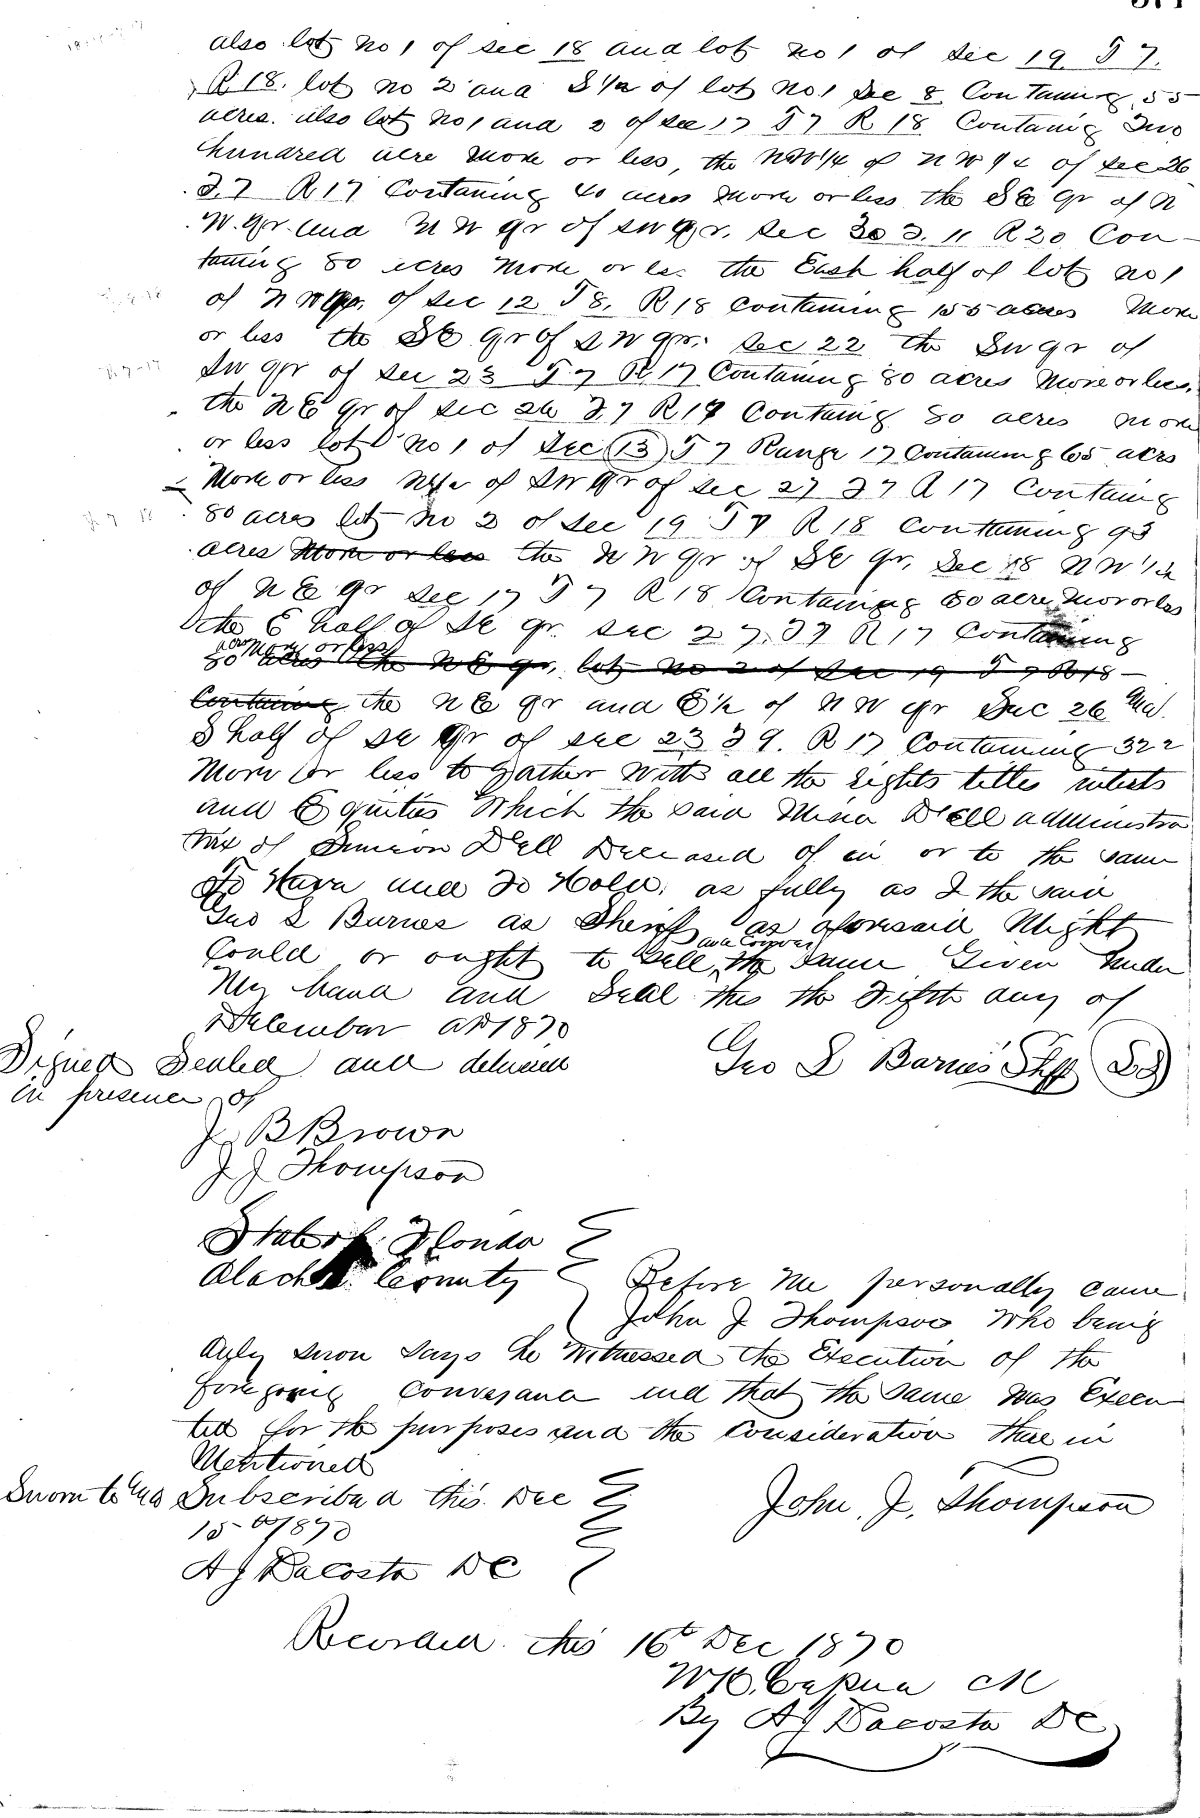 also lot no 1 of sec 18 and lot no 1 of sec 19 T 7.
R 18. lot no 2 and S 1/2 of lot no 1 Sec 8 Containing 55
acres. also lot no 1 and 2 of sec 17 T 7 R 18 Containig Two
hundred acre more or less, the NW 1/4 of NW 1/4 of sec 26
T. 7 R 17 Containing 40 acres more or less the SE qr of N
W. qr. and NW qr of SW qr. Sec 30 T. 11 R 20 Con-
taining 80 acres more or les. the East half of lot no 1
of NW qr. of Sec 12 T 8. R 18 containing 155 acres more
or less the SE qr of SW qr. Sec 22 the SW qr of
SW qr of Sec 23 T 7 R 17 Containing 80 acres more or less,
the NE qr of Sec 26 T. 7 R 17 Containg 80 acres more
or less lot no 1 of Sec 13 T 7 Range 17 Containing 65 acrs
more or less N 1/2 of SW qr of sec 27 T 7 R 17 Containg
80 acres lot no 2 of Sec 19 T 7 R 18 Containing 93
acres more or less the NW qr of SE qr. Sec 18 NW 1/4
of NE qr Sec 17 T 7 R 18 Containing 80 acre, mor or les
the E half of SE qr. sec 27. T 7 R 17 Containing
acres more or less
80 acres the NE qr, lot no 2 of Sec 19 T 7 R 18 -
Containing the NE qr and E 1/2 of NW qr Sec 26 and
S half of SE qr of sec 23 T 7. R 17 Containing 322
more or less to gather with all the rights titles intrests
and Equities which the said Mina Dell administra
trix of Simeon Dell Deceased of in or to the same
To Have and To Hold, as fully as I the said
Geo S Barnes as Sheriff as aforesaid Might
and Convey
Could or ought to Sell, the same Given under
My hand and Seal this the Fifth day of
December AD 1870
Signed Sealed and delivered
Geo S Barnes Shff LS
in presence of
J. B Brown
J J Thompson
State of Florida
Alachua County Before Me personally came
John J Thompson Who being
duly sworn says he Witnessed the Execution of the
foregoing Conveyance and that the same was Execu
ted for the purposes and the Consideration there in
Mentioned
Sworn to and Subscribed this Dec
John, J, Thompson
15th 1870
A J Dacosta DC
Recorded this 16th Dec 1870
By A J Dacosta DC